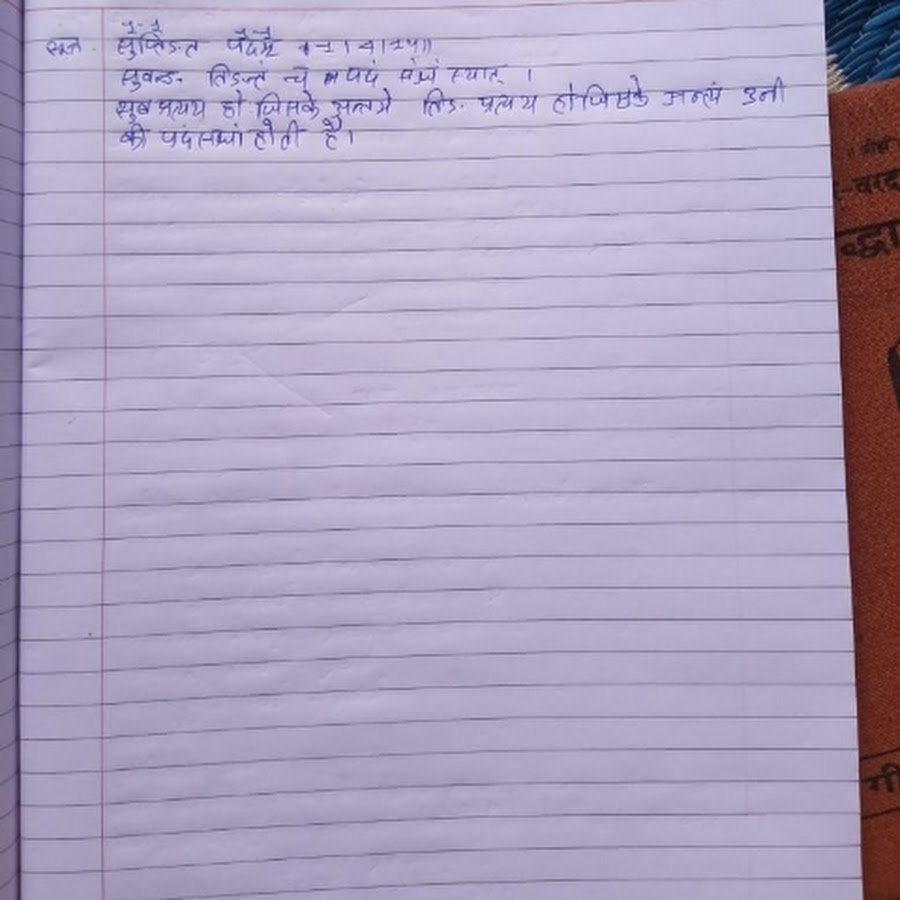 सूत्र. सुप्तिङन्त पदम् १।४।१४॥
सुवन्ङ. तिङन्तं च पदं संज्ञं स्यात् ।
सुब प्रत्यय हो जिसके अन्तमे तिङ. प्रत्यय हो जिसके अन्त्य उनी
की पदं संज्ञां होती है।
वरद
द्धा
गी